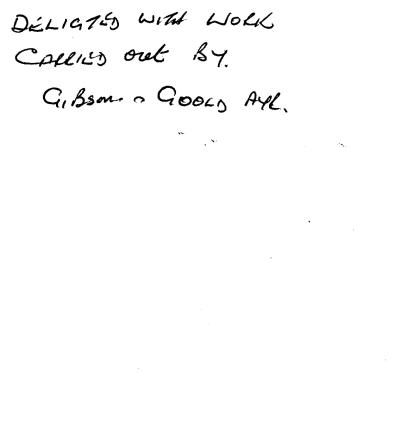 DELIGTED WITH WORK
CARRIED OUT BY.
GIBSON & GOOLD AYR.